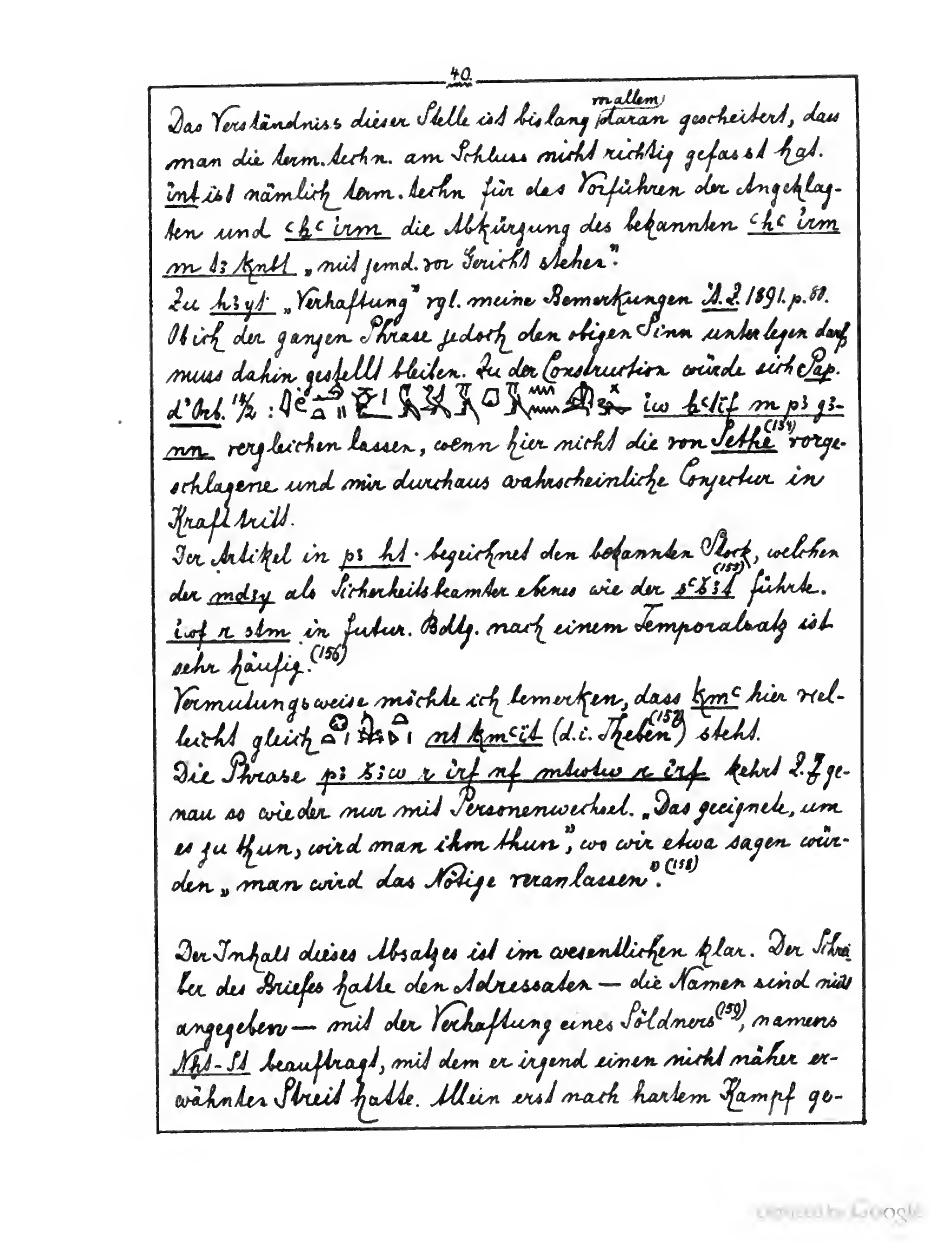 40.
Das Verständniss dieser Stelle ist bislang v. allem daran gescheitert, dass
man die term. techn. am Schluss nicht richtig gefasst hat.
int ist nämlich term. techn für das Vorführen der Angeklag-
ten und ꜥḥꜥ irm die Abkürzung des bekannten ꜥḥꜥ irm
m tꜣ knbt „mit jemd. vor Gericht stehen".
Zu ḥꜣyt „Verhaftung" vgl. meine Bemerkungen Ä.Z. 1891. p. 88.
Ob ich der ganzen Phrase jedoch den obigen Sinn unterlegen darf
muss dahin gestellt bleiben. Zu der Construction würde sich Pap.
d'Orb. : iw m pꜣ gꜣ-
nn vergleichen lassen, wenn hier nicht die von Sethe (154) vorge-
schlagene und mir durchaus wahrscheinliche Conjectur in
Kraft tritt.
Der Artikel in pꜣ ht bezeichnet den bekannten Stock, welchen
der mdꜣy als Sicherheitsbeamter ebenso wie der (155) führte.
iwf r stm in futur. Bdtg. nach einem Temporalsatz ist
sehr häufig. (156)
Vermutungsweise möchte ich bemerken, dass kmꜥ hier viel-
leicht gleich nt kmꜥit (d. i. Theben (157)) steht.
Die Phrase pꜣ šꜣw r irf nf mtwtw r irf kehrt 2.7 ge-
nau so wieder nur mit Personenwechsel. „Das geeignete, um
es zu thun, wird man ihm thun", wo wir etwa sagen wür-
den „man wird das Nötige veranlassen". (158)
Der Inhalt dieses Absatzes ist im wesentlichen klar. Der Schrei-
ber des Briefes hatte den Adressaten — die Namen sind nicht
angegeben — mit der Verhaftung eines Söldners (159), namens
Nḫt-St beauftragt, mit dem er irgend einen nicht näher er-
wähnten Streit hatte. Allein erst nach hartem Kampf ge-
Digitized by Google